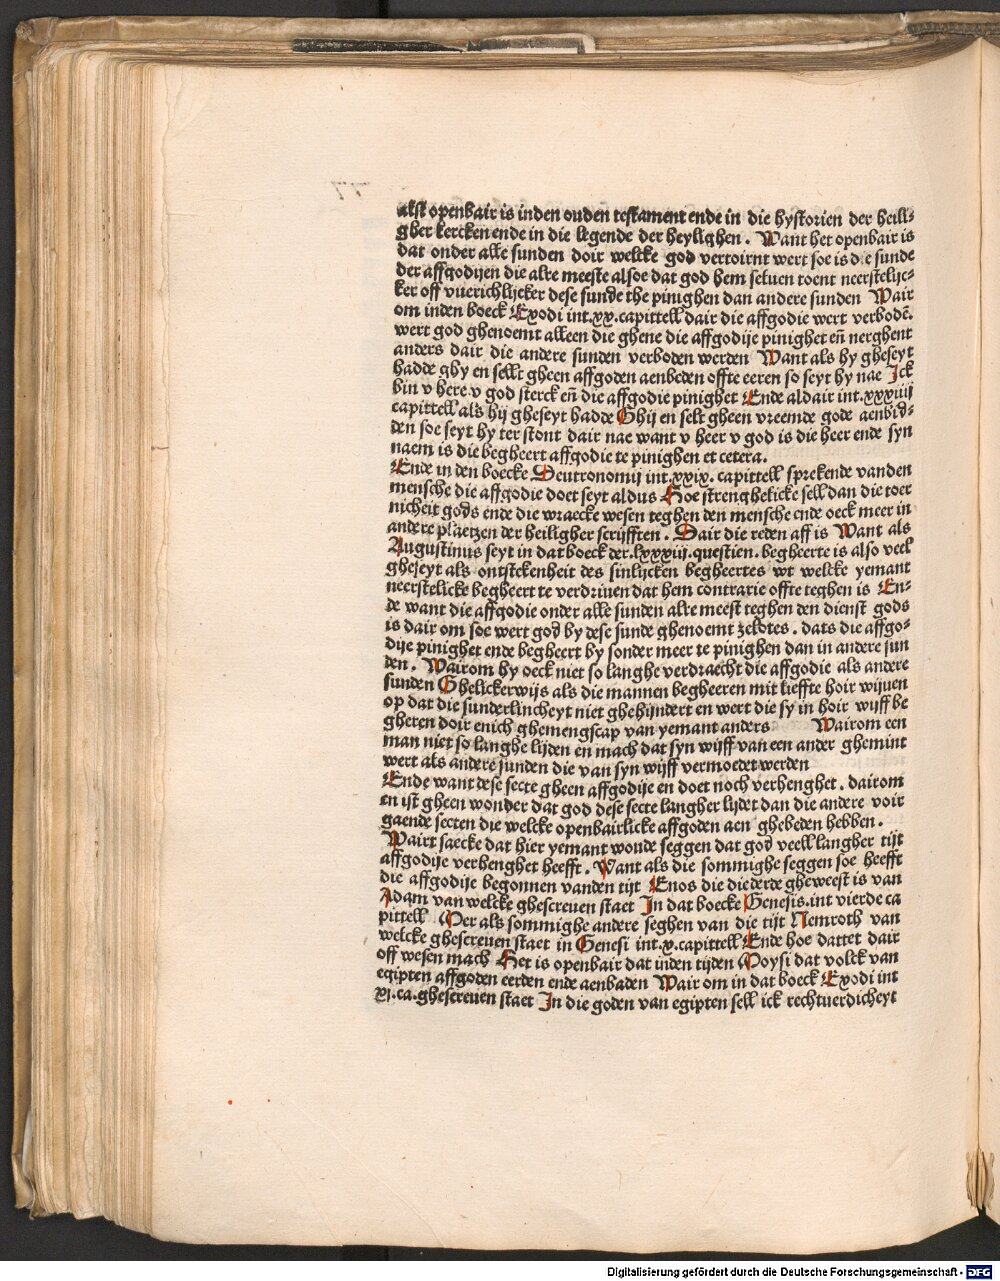 alst openbair is inden ouden testament ende in die hystorien der heili-
gher kercken ende in die legende der heylighen. Want het openbair is
dat onder alle sunden doir welcke god vertoirnt wert soe is die sunde
der affgodijen die alre meeste alsoe dat god hem seluen toent neerstelijc-
ker off vuerichlijcker dese sunde the pinighen dan andere sunden Wair
om inden boeck Exodi int.xx.capittell dair die affgodie wert verbodē.
wert god ghenoemt alleen die ghene die affgodije pinighet en̄ nerghent
anders dair die andere sunden verboden werden Want als hy gheseyt
hadde ghy en sellt gheen affgoden aenbeden offte eeren so seyt hy nae Ick
bin v here v god sterck en̄ die affgodie pinighet Ende aldair int.xxxiiij
capittell als hij gheseyt hadde Ghij en selt gheen vreemde gode aenbid-
den soe seyt hy ter stont dair nae want v heer v god is die heer ende syn
naem is die begheert affgodie te pinighen et cetera.
Ende in den boecke Deutronomij int.xxix. capittell sprekende vanden
mensche die affgodie doet seyt aldus Hoe strenghelicke sell dan die toer
nicheit gods ende die wraecke wesen teghen den mensche ende oeck meer in
andere plaetzen der heiligher scrijfften. Dair die reden aff is Want als
Augustinus seyt in dat boeck der.lxxxiij.questien. begheerte is also veel
gheseyt als ontstekenheit des sinlijcken begheertes wt welcke yemant
neerstelicke begheert te verdriuen dat hem contrarie offte teghen is En-
de want die affgodie onder alle sunden alre meest teghen den dienst gods
is dair om soe wert god by dese sunde ghenoemt zelotes. dats die affgo-
dije pinighet ende begheert by sonder meer te pinighen dan in andere sun
den. Wairom hy oeck niet so langhe verdraecht die affgodie als andere
sunden Ghelickerwijs als die mannen begheeren mit lieffte hoir wijuen
op dat die sunderlincheyt niet ghehijndert en wert die sy in hoir wijff be
gheren doir enich ghemengscap van yemant anders Wairom een
man niet so langhe lijden en mach dat syn wijff van een ander ghemint
wert als andere sunden die van syn wijff vermoedet werden
Ende want dese secte gheen affgodije en doet noch verhenghet. dairom
en ist gheen wonder dat god dese secte langher lijdet dan die andere voir
gaende secten die welcke openbairlicke affgoden aen ghebeden hebben.
Wairt saecke dat hier yemant wonde seggen dat god veell langher tijt
affgodije verhenghet heefft. Want als die sommighe seggen soe heefft
die affgodije begonnen vanden tijt Enos die die derde gheweest is van
Adam van welcke ghescreuen staet In dat boecke Genesis.int vierde ca
pittell Mer als sommighe andere seghen van die tijt Nemroth van
welcke ghescreuen staet in Genesi int.x.capittell Ende hoe dattet dair
off wesen mach Het is openbair dat inden tijden Moysi dat volck van
egipten affgoden eerden ende aenbaden Wair om in dat boeck Exodi int
xj.ca.ghescreuen staet In die goden van egipten sell ick rechtuerdicheyt
Digitalisierung gefördert durch die Deutsche Forschungsgemeinschaft - DFG